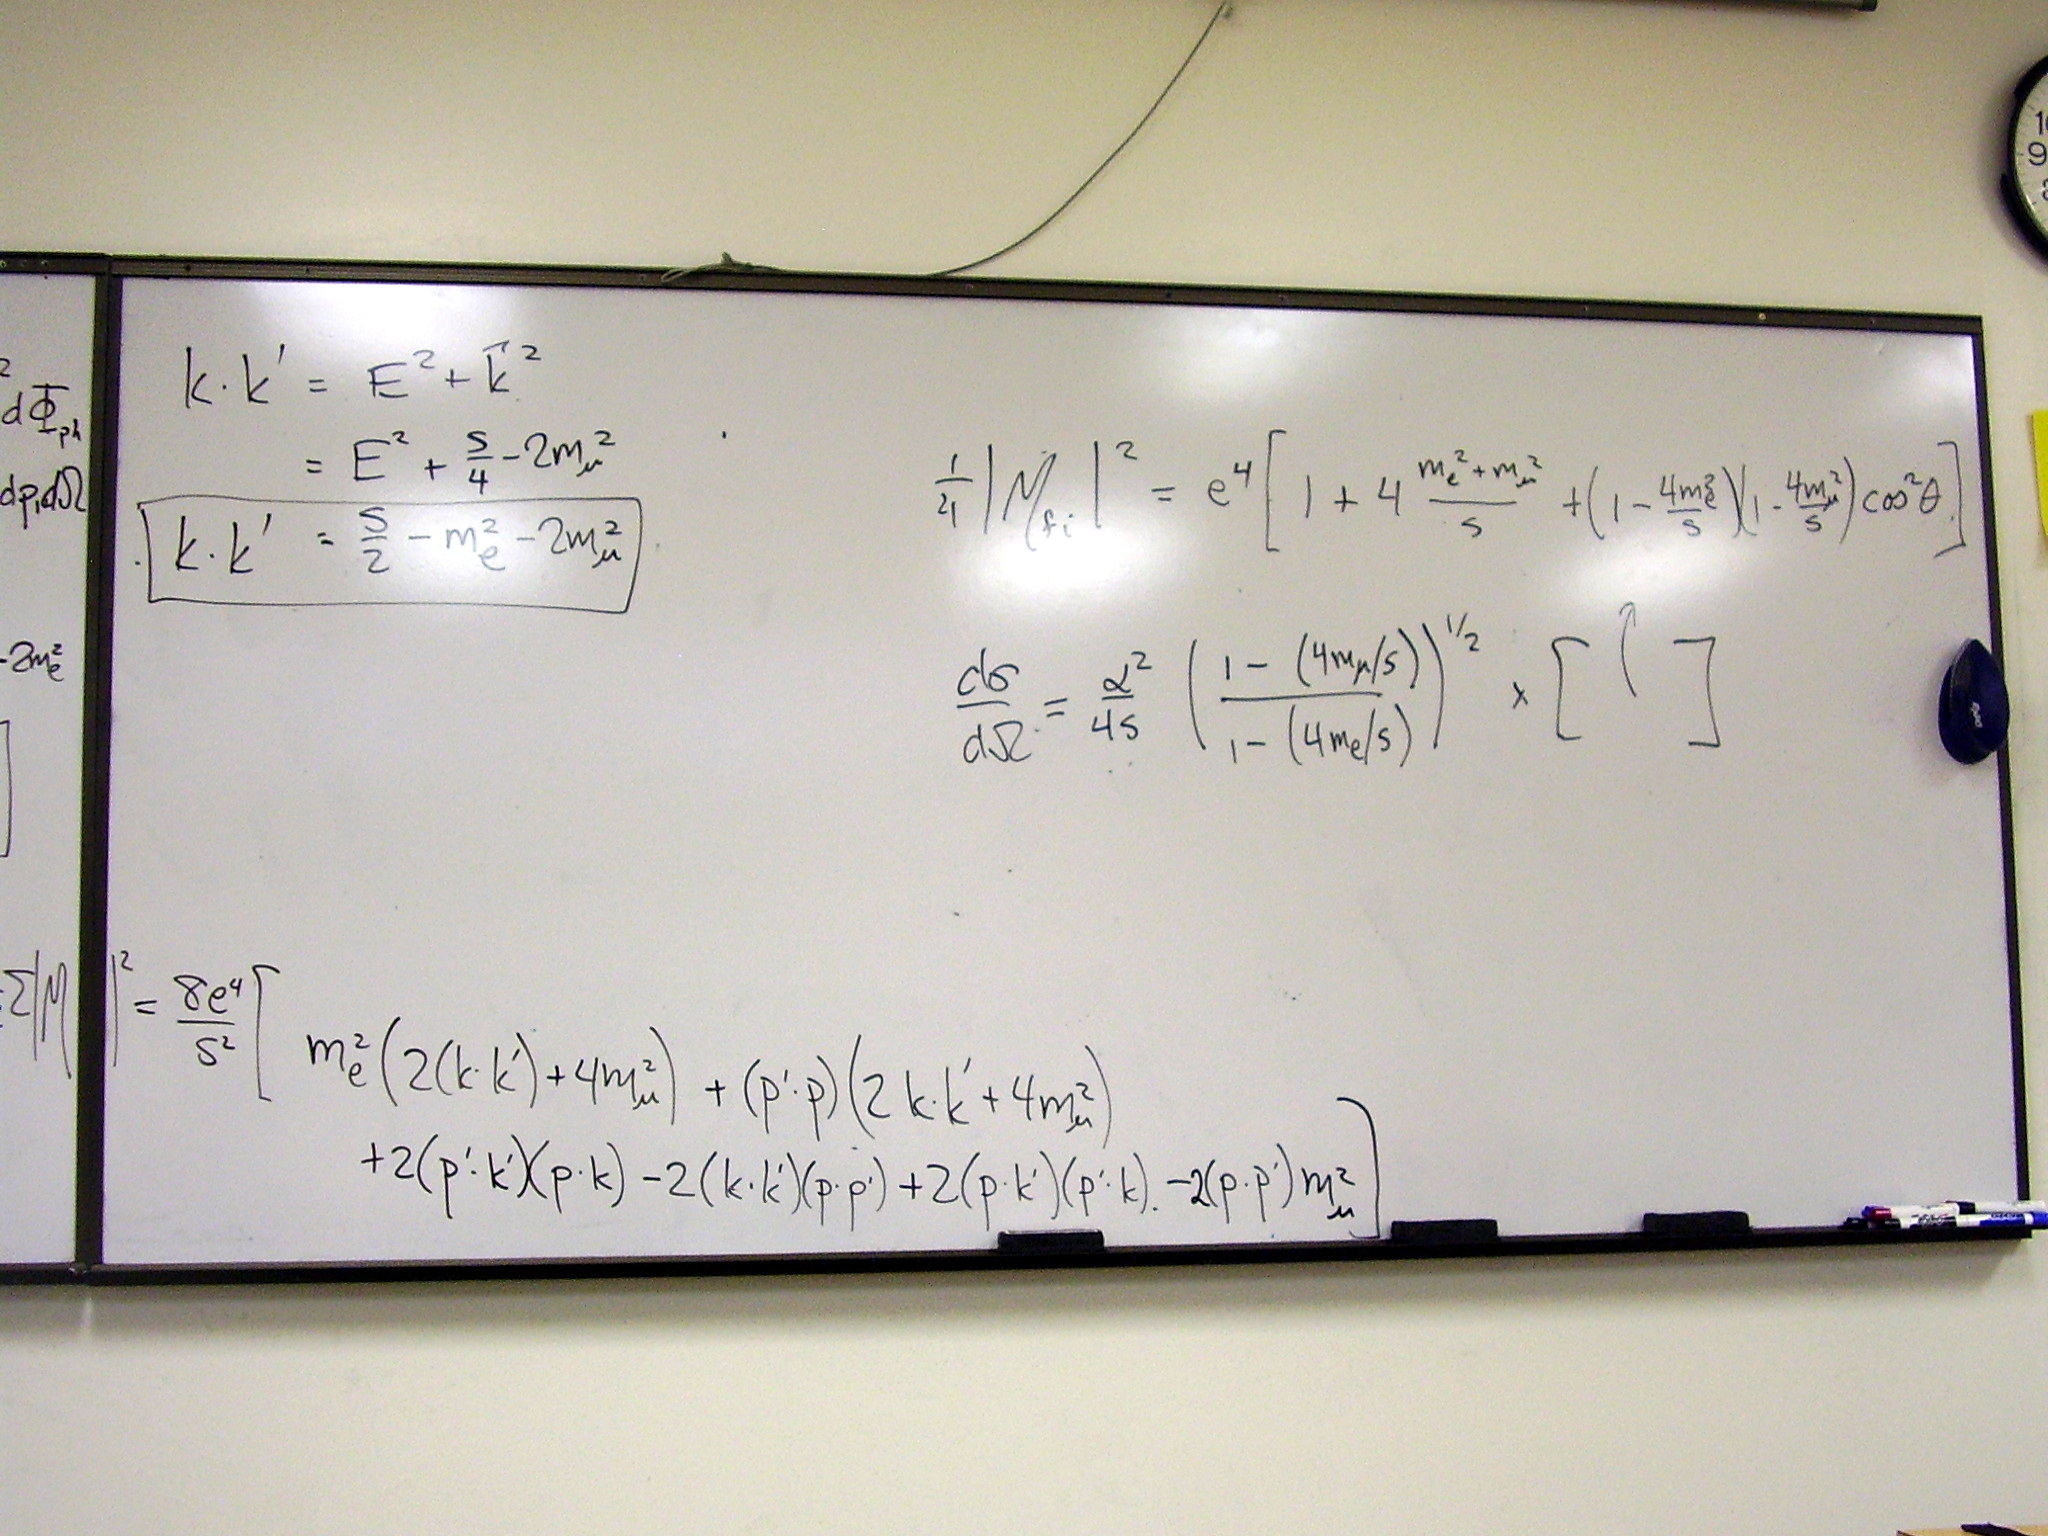 2
dΦ_ph
dp₁dΩ
-2m_e²
k·k' = E² + k⃗²
= E² + s/4 - 2m_μ²
k·k' = s/2 - m_e² - 2m_μ²
1/4 |M_fi|² = e⁴ [ 1 + 4 (m_e² + m_μ²)/s + (1 - 4m_e²/s)(1 - 4m_μ²/s) cos²θ ]
dσ/dΩ = α²/4s ( (1 - (4m_μ/s)) / (1 - (4m_e/s)) )^1/2 × [ ]
Σ|M|² = 8e⁴/s² [ m_e²(2(k·k') + 4m_μ²) + (p'·p)(2k·k' + 4m_μ²)
+2(p'·k')(p·k) - 2(k·k')(p·p') + 2(p·k')(p'·k) - 2(p·p')m_μ² ]
10
9
8